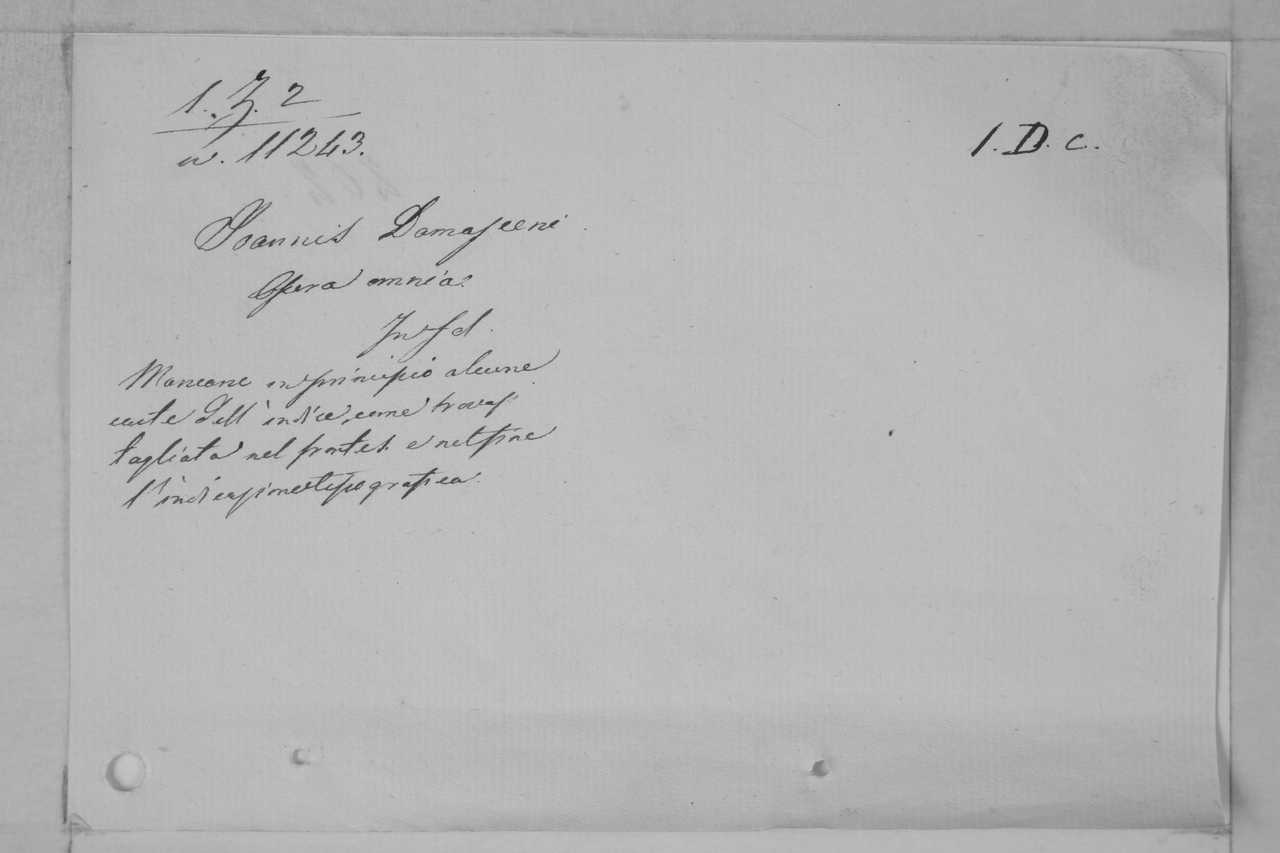 1. Z. 2
n. 11243.
1. D. c.
Joannis Damasceni
Opera omnia
In fol.
Mancano in principio alcune
carte dell'indice, come trovasi
tagliata nel frontes. e nel fine
l'indicazione tipografica.